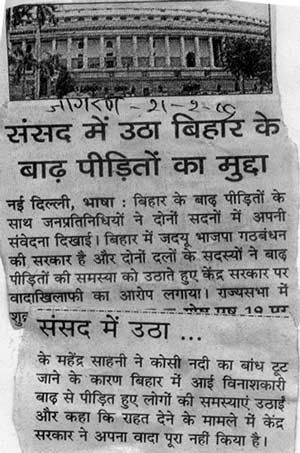 जागरण - २१-२-०९
संसद में उठा बिहार के
बाढ़ पीड़ितों का मुद्दा
नई दिल्ली, भाषा : बिहार के बाढ़ पीड़ितों के
साथ जनप्रतिनिधियों ने दोनों सदनों में अपनी
संवेदना दिखाई। बिहार में जदयू भाजपा गठबंधन
की सरकार है और दोनों दलों के सदस्यों ने बाढ़
पीड़ितों की समस्या को उठाते हुए केंद्र सरकार पर
वादाखिलाफी का आरोप लगाया। राज्यसभा में
शेष पृष्ठ 19 पर
संसद में उठा ...
के महेंद्र साहनी ने कोसी नदी का बांध टूट
जाने के कारण बिहार में आई विनाशकारी
बाढ़ से पीड़ित हुए लोगों की समस्याएं उठाईं
और कहा कि राहत देने के मामले में केंद्र
सरकार ने अपना वादा पूरा नहीं किया है।